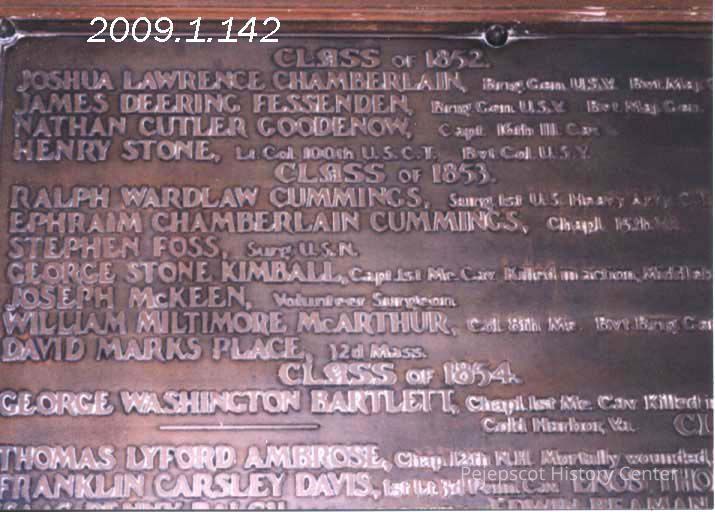 2009.1.142
CLASS OF 1852.
JOSHUA LAWRENCE CHAMBERLAIN, Brig. Gen. U.S.V. Bvt. Maj. G
JAMES DEERING FESSENDEN, Brig. Gen. U.S.V. Bvt. Maj. Gen.
NATHAN CUTLER GOODENOW, Capt. 16th Ill. Cav.
HENRY STONE, Lt. Col. 100th U.S.C.T. Bvt. Col. U.S.V.
CLASS OF 1853.
RALPH WARDLAW CUMMINGS, Surg. 1st U.S. Heavy Arty. C.
EPHRAIM CHAMBERLAIN CUMMINGS, Chapl. 15th
STEPHEN FOSS, Surg. U.S.N.
GEORGE STONE KIMBALL, Capt. 1st Me. Cav. Killed in action, Middleb
JOSEPH McKEEN, Volunteer Surgeon.
WILLIAM MILTIMORE McARTHUR, Col. 8th Me. Bvt. Brig. Gen
DAVID MARKS PLACE, 12d Mass.
CLASS OF 1854.
GEORGE WASHINGTON BARTLETT, Chapl. 1st Me. Cav. Killed i
Cold Harbor, Va. CL
THOMAS LYFORD AMBROSE, Chap. 12th N.H. Mortally wounded,
FRANKLIN CARSLEY DAVIS, 1st Lt. 3d Penn. Cav. ENOS THO
EDWIN BEAMAN
Pejepscot History Center